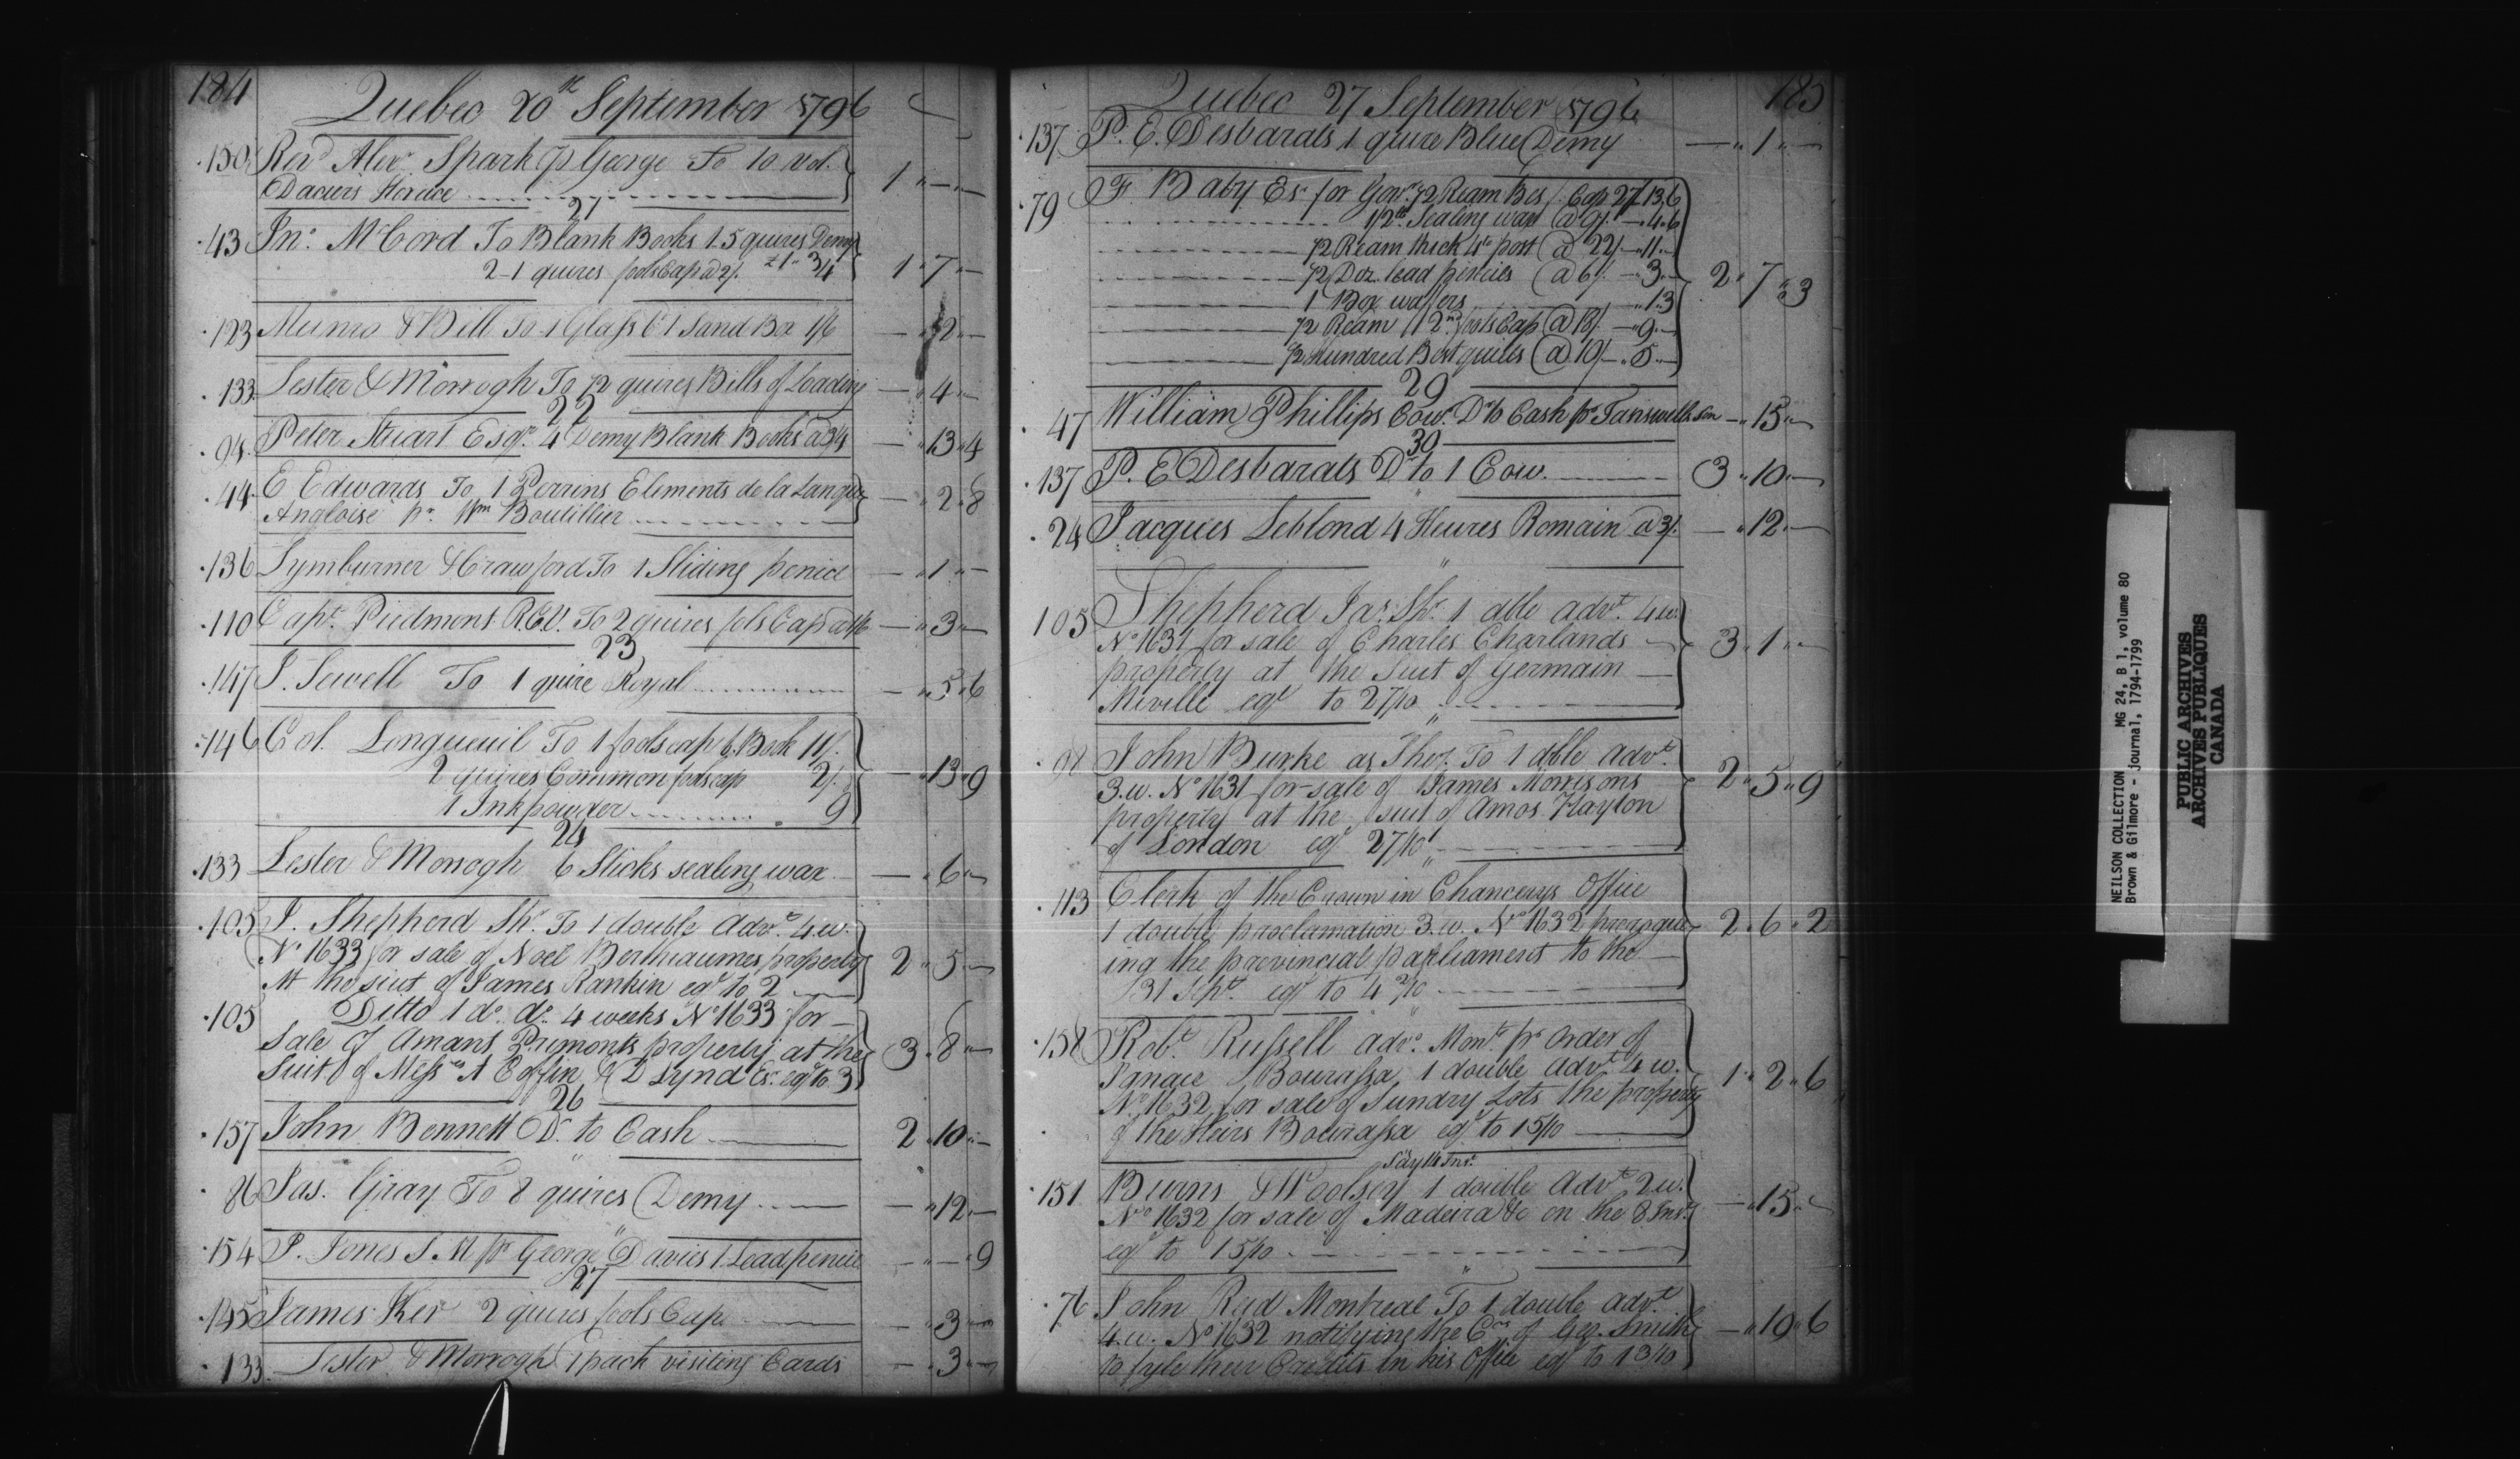 184
Quebec 20th September 1796
150 Revd Alexr Spark pr George To 10 vol.
Daciers Horace 1 " — " —
21
43 Jno. McCord To Blank Books 1.5 quires Demy
2-1 quires fools Cap a 2/. 1 " 7 " —
123 Munro & Bell To 1 Glass & 1 Sand Box 1/6 — " 2 " —
133 Lester & Morrogh To 1/2 quires Bills of Loading — " 4 " —
22
94 Peter Stuart Esqr. 4 Demy Blank Books a 3/4 — " 13 " 4
44 E Edwards To 1 Perrins Elements de la Langue
Angloise pr. Wm Boutillier — " 2 " 8
136 Lymburner & Crawford To 1 Sliding pencil — " 1 " —
110 Capt. Piedmont R.C.V. To 2 quires fols Cap a 1/6 — " 3 " —
23
147 J. Sewell To 1 quire Royal — " 5 " 6
146 Col. Longueuil To 1 foolscap b. Book 11/.
2 quires Common foolscap 2/. — " 13 " 9
1 Inkpowder 9
24
133 Lester & Morrogh 6 Sticks sealing wax — " 6 " —
105 J. Shepherd Shr. To 1 double Advt. 4.w.
No 1633 for sale of Noel Berthiaumes property 2 " 5 " —
At the suit of James Rankin eql to 2
105 Ditto 1 do. do. 4 weeks No 1633 for
Sale of Amans Primonts property at the 3 " 8 " —
Suit of Messrs A Coffin & D Lynd Esr. eql to 3
26
157 John Bennett Dr. to Cash 2 " 10 " —
86 Jas. Gray To 8 quires Demy — " 12 " —
154 P. Jones S.M pr George Davies 1 Lead pencil — " — " 9
27
145 James Ker 2 quires fools Cap — " 3 " —
133 Lester & Morrogh 1 pack visiting Cards — " 3 " —
185
Quebec 27 September 1796
137 P. E. Desbarats 1 quire Blue Demy — " 1 " —
79 F. Baby Esr for Govt. 1/2 Ream Bes/. Cap 27/ 13.6
1/2 lb Sealing wax @ 9/. — 4.6
1/2 Ream thick 4to post @ 22/ — 11 —
1/2 Doz. lead pencils @ 6/. — 3 — 2 " 7 " 3
1 Box wafers 1.3
1/2 Ream 2nd fools Cap @ 18/. — 9 —
1/2 Hundred Best quills @ 10/ — 5 —
29
47 William Phillips Cow. Dr to Cash pr Tanswells Son — " 15 " —
30
137 P. E Desbarats Dr to 1 Cow. 3 " 10 " —
24 Jacques Leblond 4 Heures Romain a 3/. — " 12 " —
105 Shepherd Jas. Shr. 1 dble advt. 4.w.
No 1631 for sale of Charles Charlands 3 " 1 " —
property at the Suit of Germain
Miville eql to 2 7/10
98 John Burke as Sher. To 1 dble Advt.
3.w. No 1631 for sale of James Morrisons 2 " 5 " 9
property at the suit of Amos Hayton
of London eql 2 7/10
113 Clerk of the Crown in Chancerys Office
1 double proclamation 3.w. No 1632 prorogue 2 " 6 " 2
ing the provincial parliament to the
31 Spt. eql to 4 2/10
158 Robt. Russell advo. Mont. pr order of
Ignace Bourassa 1 double advt 4 w. 1 " 2 " 6
No. 1632 for sale of Sundry Lots the property
of the Heirs Bourassa eql to 1 5/10
Say 14 Inst.
151 Burns & Woolsey 1 double Advt 2.w.
No 1632 for sale of Madeira &c on the 8 Inst. — " 15 " —
eql to 1 5/10
76 John Reid Montreal To 1 double advt.
4.w. No 1632 notifying the Crs of Geo. Smith — " 19 " 6
to fyle their Credits in his Office eql to 1 3/10
NEILSON COLLECTION MG 24, B 1, volume 80
Brown & Gilmore - Journal, 1794-1799
PUBLIC ARCHIVES
ARCHIVES PUBLIQUES
CANADA